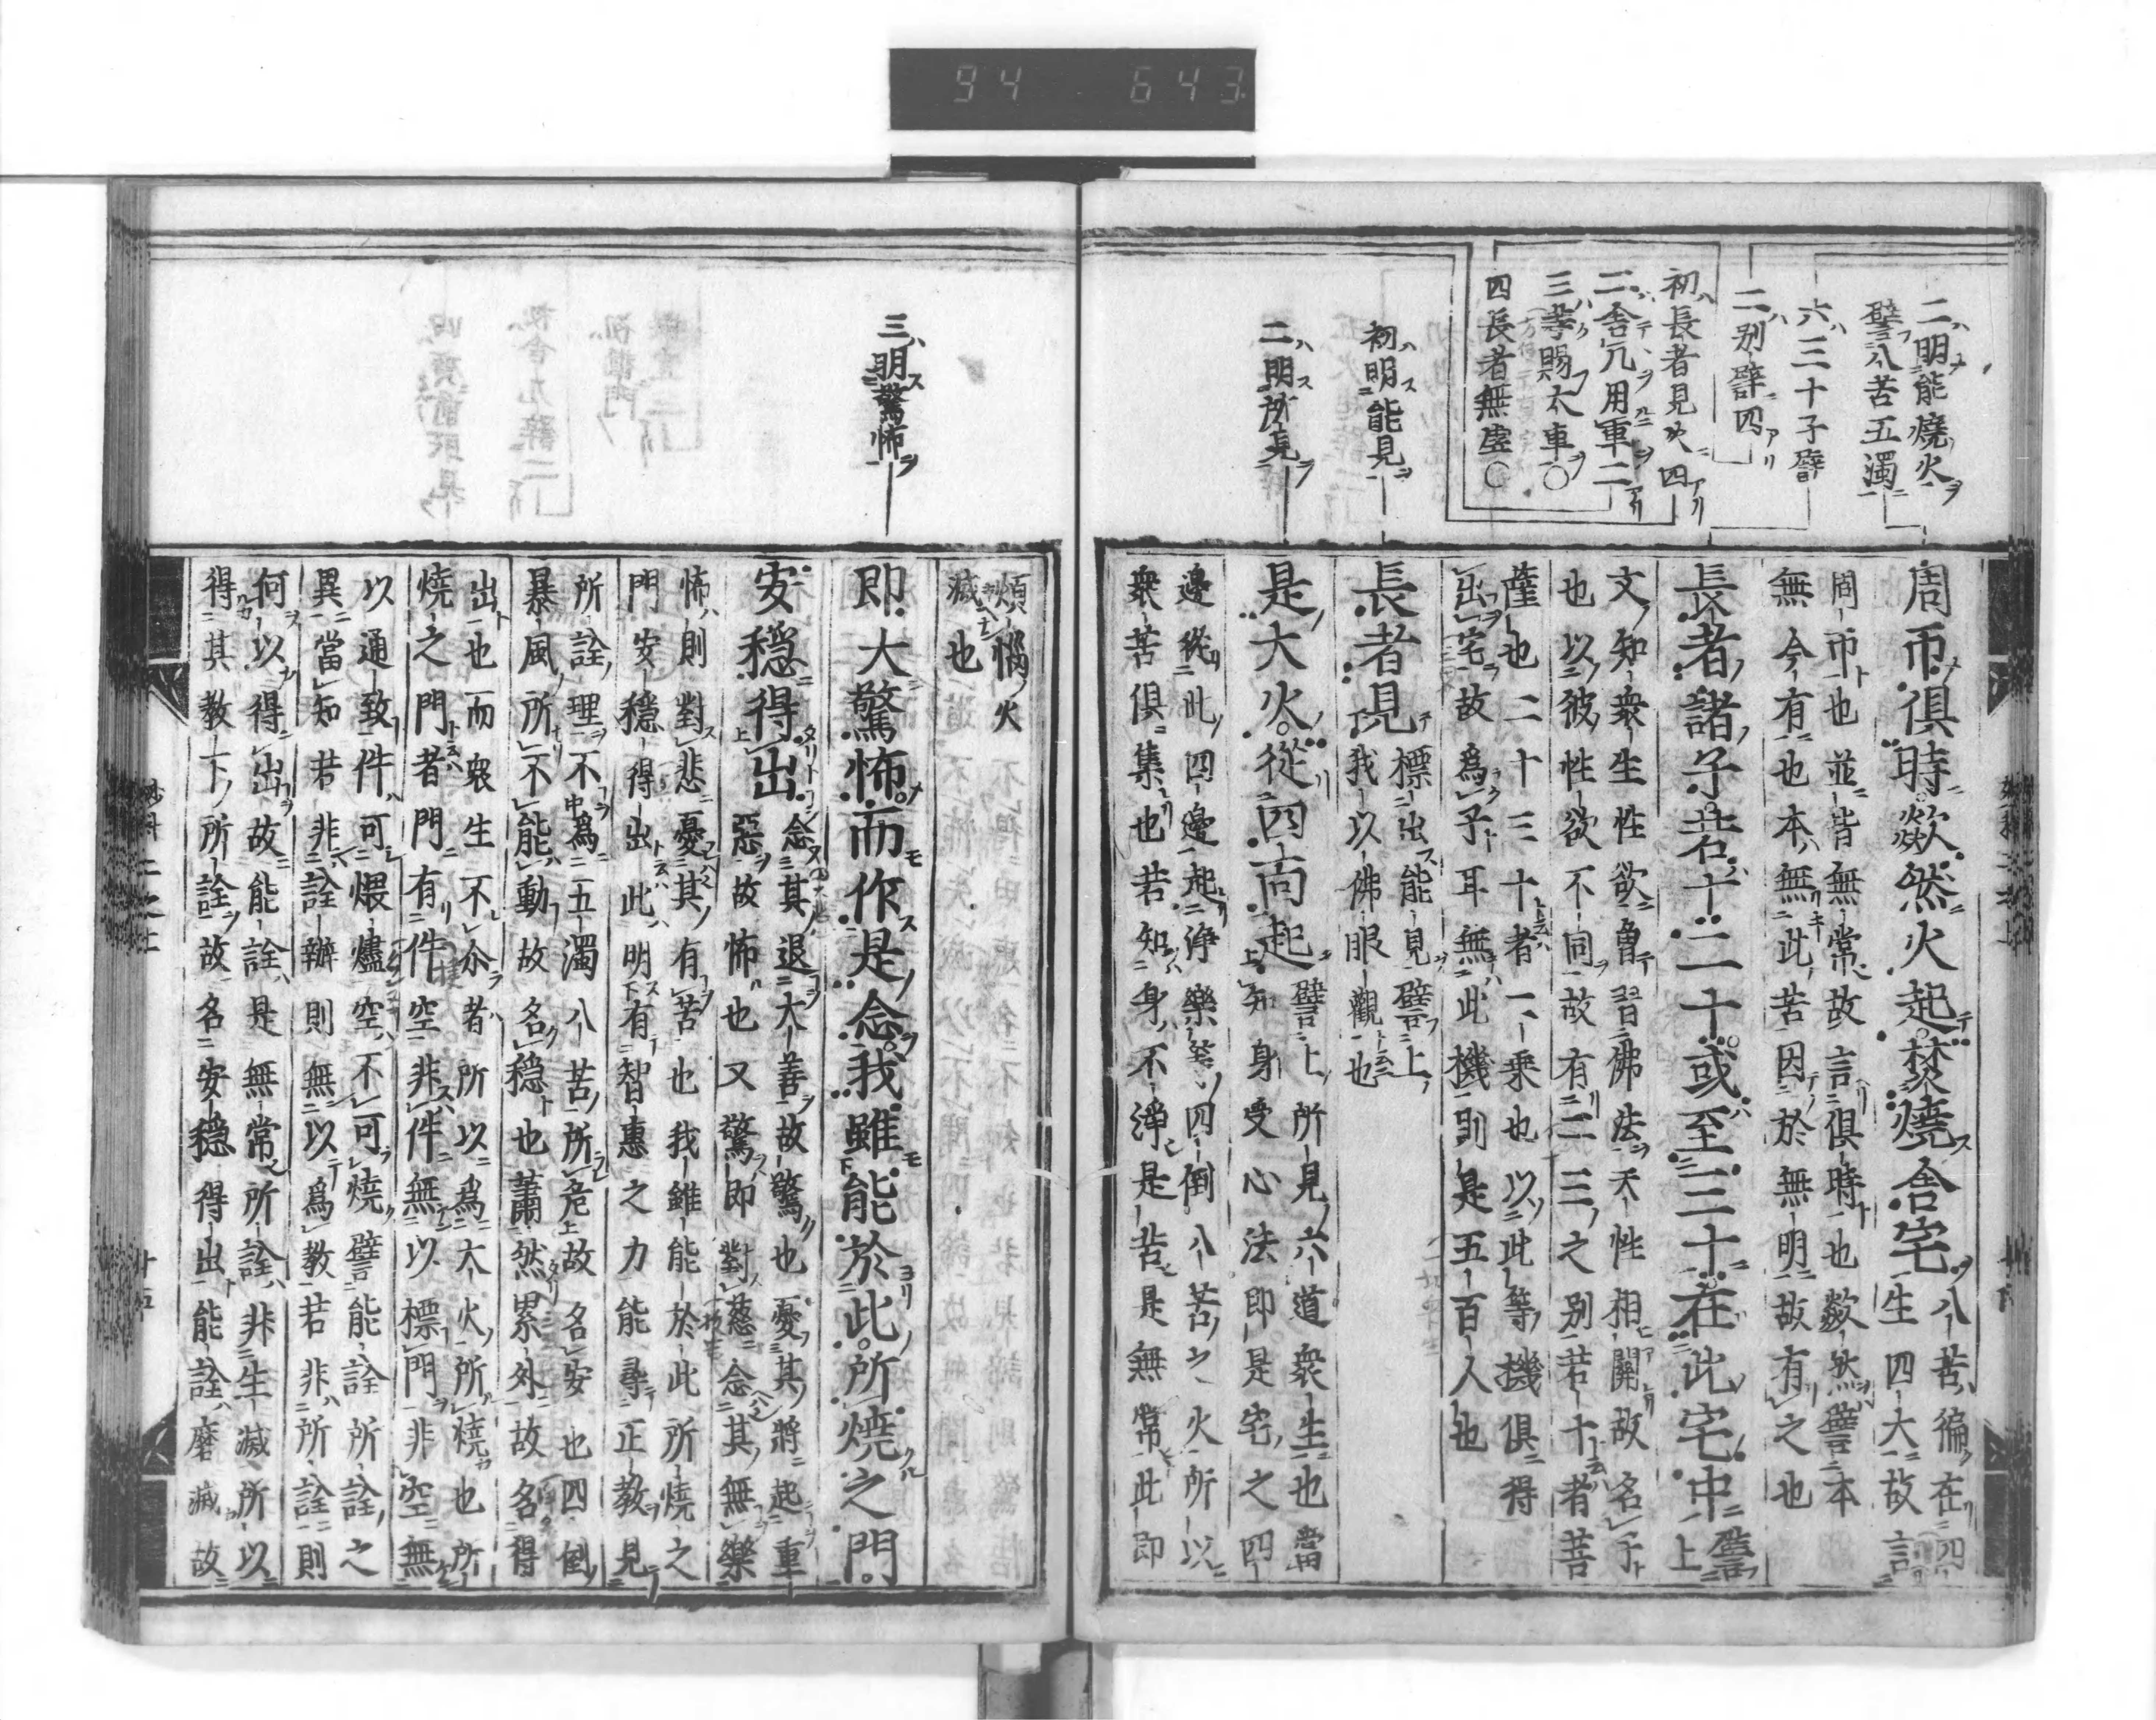 94 643
二明能燒火
譬八苦五濁
六三十子譬
二別譬四
初長者見火四
二舍几用車二
三等賜大車○
四長者無虛○
初明能見
二明所見
周帀俱時欻然火起焚燒舍宅
八苦徧在四
生四大故言
周帀也並皆無常故言俱時也欻然譬本
無今有也本無此苦因於無明故有之也
長者諸子若十二十或至三十在此宅中
譬上
文知衆生性欲曾習佛法天性相關故名子
也以彼性欲不同故有二三之別若十者菩
薩也二十三十者二乘也以此等機俱得
出宅故爲子耳無此機則是五百人也
長者見
標出能見譬上
我以佛眼觀也
是大火從四面起
譬上所見六道衆生也當
知身受心法即是宅之四
邊從此四邊起淨樂等四倒八苦之火所以
衆苦俱集也若知身不淨是苦是無常此即
三明驚怖
煩惱火
滅也
即大驚怖而作是念我雖能於此所燒之門
安穩得出
念其退大善故驚也憂其將起重
惡故怖也又驚即對慈念其無樂
怖則對悲憂其有苦也我雖能於此所燒之
門安穩得出此明有智惠之力能尋正教見
所詮理不爲五濁八苦所危故名安也四倒
暴風所不能動故名穩也蕭然累外故名得
出也而衆生不尒者所以爲大火所燒也所
燒之門者門有件空非件無以標門非空無
以通致件可煨燼空不可燒譬能詮所詮之
異當知若非詮辯則無以爲教若非所詮則
何以得出故能詮是無常所詮非生滅所以
得其教下所詮故名安穩得出能詮磨滅故